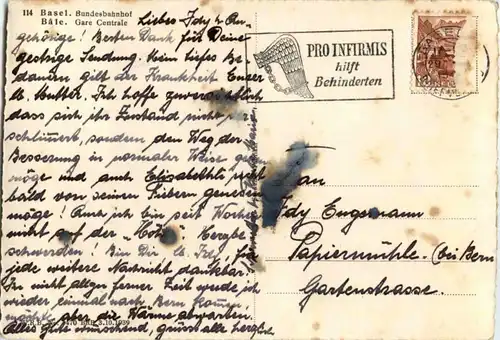 114 Basel. Bundesbahnhof
Bâle. Gare Centrale
Liebes Idy & An-
gehörige! Besten Dank für Deine
gestrige Sendung. Mein tiefes Be-
dauern gilt der Krankheit Eurer
lb. Mutter. Ich hoffe zuversichtlich
dass sich ihr Zustand nicht ver-
schlimmert, sondern den Weg der
Besserung in normaler Weise gehen
möge und auch Elisabethli recht
bald von seinem Fieber genesen
möge! Auch ich bin seit Wochen
nicht auf der "Höhe" Herzbe-
schwerden! Bin Dir, lb. Idy, für
jede weitere Nachricht dankbar!
In nicht allzu ferner Zeit werde ich
wieder einmal nach Bern kommen,
aber die Wärme abwarten.
Alles gute wünschend, grüsst alle herzl.
3.10.1939
PRO INFIRMIS
hilft
Behinderten
Frau
Idy Engemann
Papiermühle. (bei Bern
Gartenstrasse.